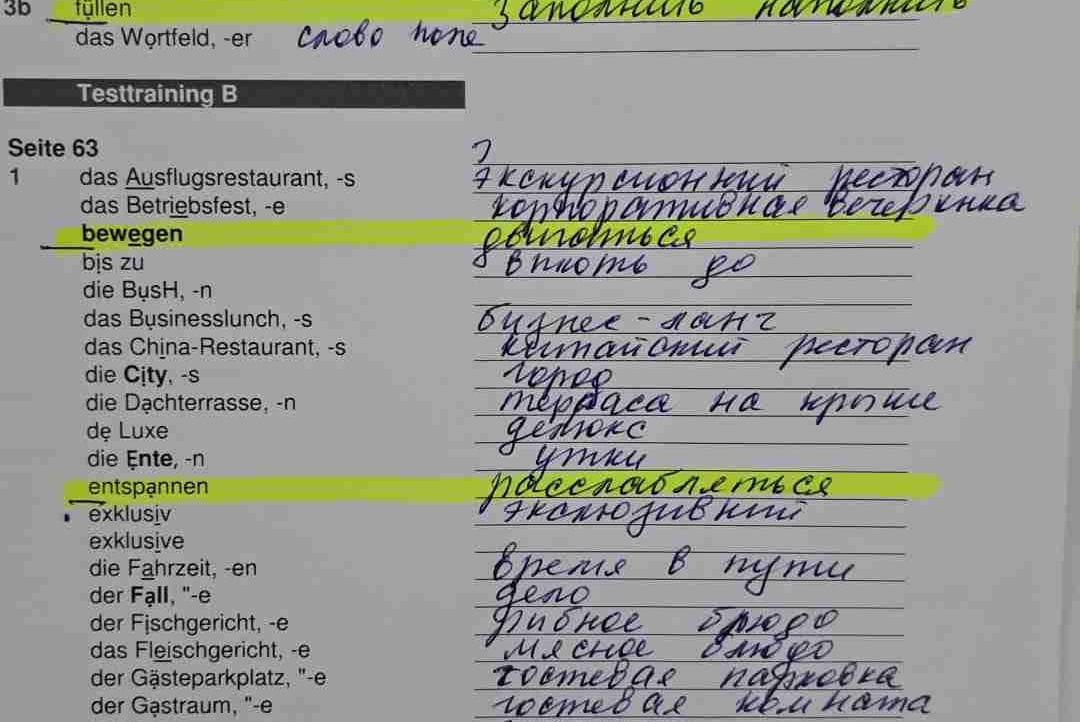 3b füllen заполнить наполнить
das Wortfeld, -er слово поле
Testtraining B
Seite 63
1 das Ausflugsrestaurant, -s экскурсионний ресторан
das Betriebsfest, -e корпоративная вечеринка
bewegen двигаться
bis zu вплоть до
die BusH, -n
das Businesslunch, -s бизнес-ланч
das China-Restaurant, -s китайский ресторан
die City, -s город
die Dachterrasse, -n терраса на крыше
de Luxe делюкс
die Ente, -n утки
entspannen расслабляться
exklusiv эксклюзивний
exklusive
die Fahrzeit, -en время в пути
der Fall, "-e дело
der Fischgericht, -e рибное блюдо
das Fleischgericht, -e мясное блюдо
der Gästeparkplatz, "-e гостевая парковка
der Gastraum, "-e гостевая комната